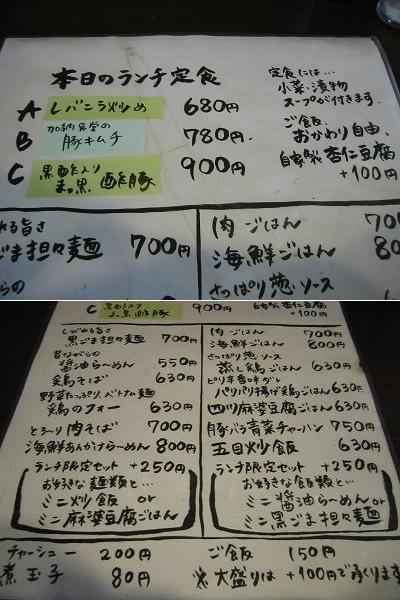 本日のランチ定食
A レバニラ炒め 680円
B 加納食堂の
豚キムチ 780円
C 黒酢入り
まっ黒 酢豚 900円
定食には…
小菜・漬物
スープが付きます.
ご飯、
おかわり自由、
自家製 杏仁豆腐
+100円
れる旨さ
ごま担々麺 700円
らの
肉ごはん 70
海鮮ごはん 80
さっぱり葱ソース
C 黒酢入り
まっ黒 酢豚 900円
自家製 杏仁豆腐
+100円
しびれる旨さ
黒ごま担々麺 700円
昔ながらの
醤油らーめん 550円
鶏そば 630円
野菜たっぷり、ベトナム麺
鶏のフォー 630円
とろ〜り 肉そば 700円
海鮮あんかけらーめん 800円
ランチ限定セット +250円
お好きな麺類と…
ミニ炒飯 or
ミニ麻婆豆腐ごはん
肉ごはん 700円
海鮮ごはん 800円
さっぱり葱ソース
蒸し鶏ごはん 630円
ピリ辛香味ダレ
パリパリ揚げ鶏ごはん 630円
四川麻婆豆腐ごはん 630円
豚バラ青菜チャーハン 750円
五目炒飯 630円
ランチ限定セット +250円
お好きな飯類と…
ミニ醤油らーめん or
ミニ黒ごま担々麺
チャーシュー 200円
煮玉子 80円
ご飯 150円
※大盛りは +100円で承ります